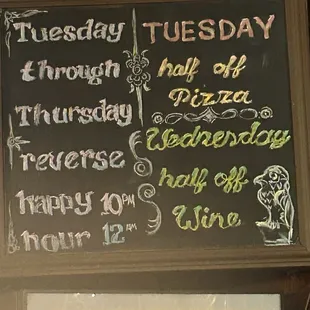 Tuesday
through
Thursday
reverse
happy 10 PM
hour 12 AM
TUESDAY
half off
Pizza
Wednesday
half off
Wine